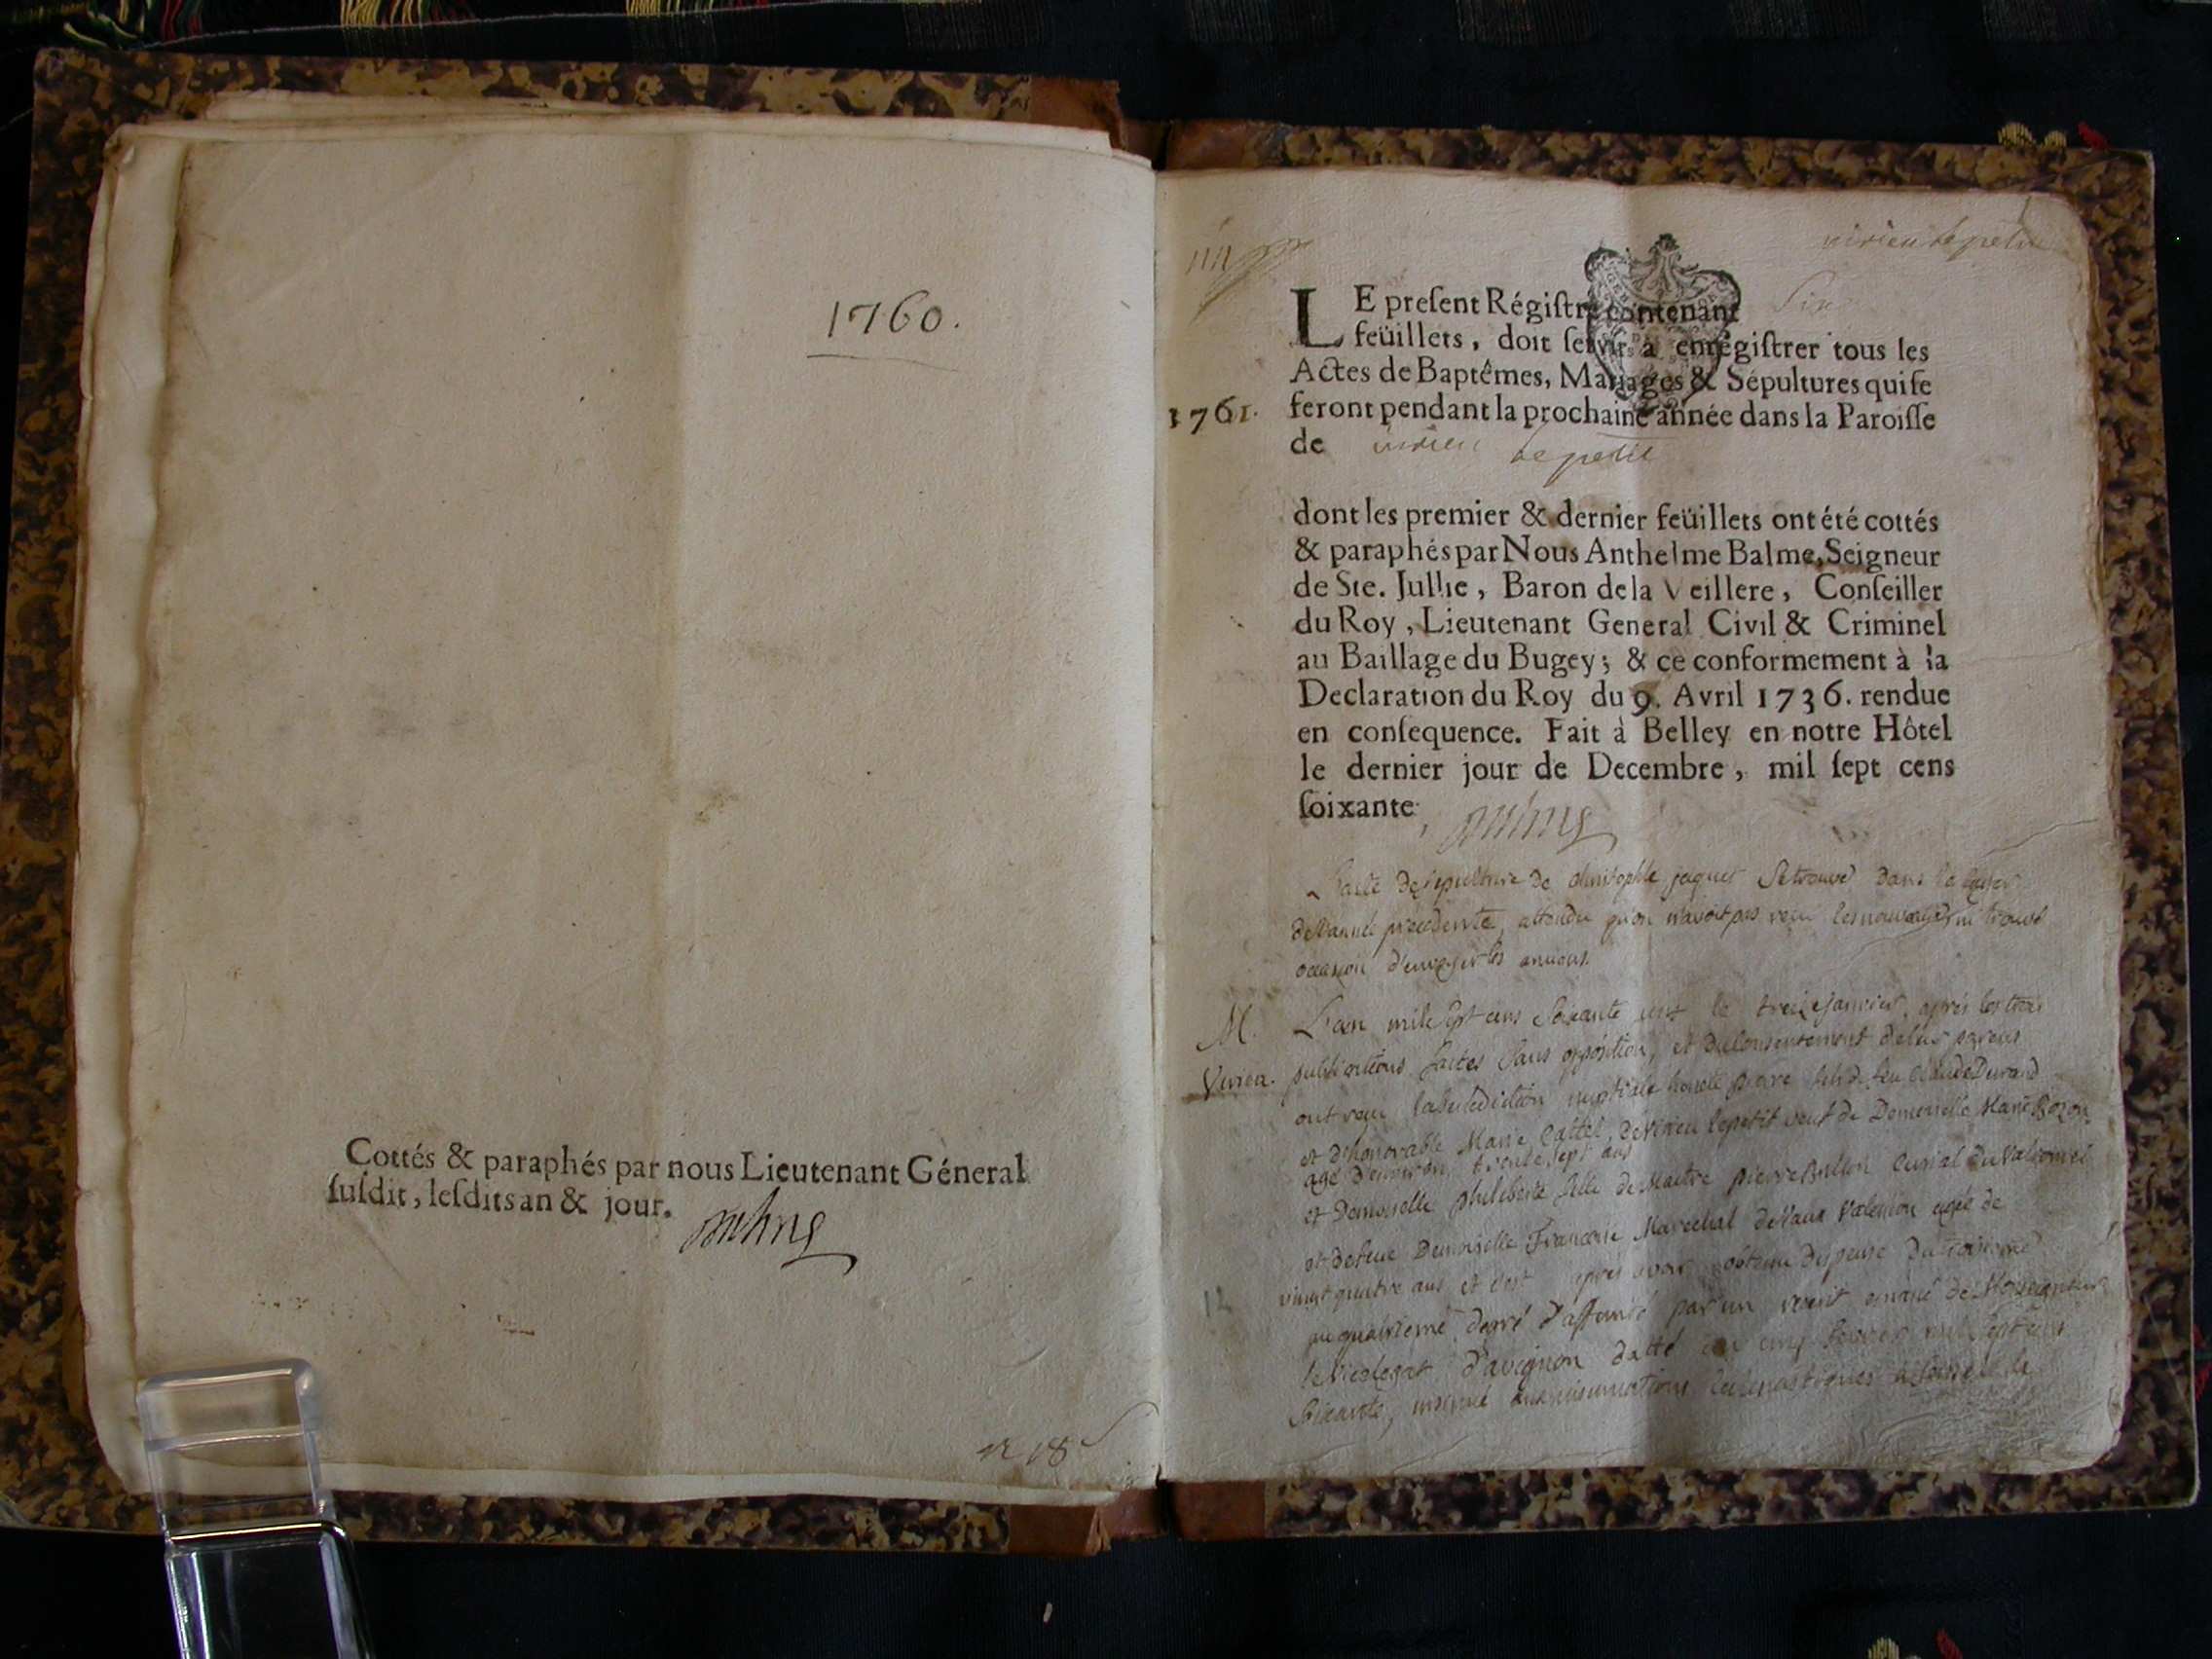 1760.
Cottés & paraphés par nous Lieutenant Géneral
ſuſdit, leſdits an & jour.
n 18
virieu le petit
LE preſent Régiſtre contenant Six
feüillets, doit ſervir à enrégiſtrer tous les
Actes de Baptêmes, Mariages & Sépultures qui ſe
1761. feront pendant la prochaine année dans la Paroiſſe
de virieu le petit
dont les premier & dernier feüillets ont été cottés
& paraphés par Nous Anthelme Balme, Seigneur
de Ste. Jullie, Baron de la Veillere, Conſeiller
du Roy, Lieutenant General Civil & Criminel
au Baillage du Bugey; & ce conformement à la
Declaration du Roy du 9. Avril 1736. rendue
en conſequence. Fait à Belley en notre Hôtel
le dernier jour de Decembre, mil ſept cens
ſoixante,
L'acte de sepulture de christophle jaquet Se trouve dans le
de l'année précédente, attendu qu'on n'avoit pas reçu les nouveaux ni trouvé
occasion d'envoyer les anciens.
M. L'an mil sept cens Soixante un le treize janvier, après les trois
publications faites Sans opposition, et du consentement de leurs parens
ont reçu la bénédiction nuptiale honnete pierre fils de feu claude Durand
et d'honorable Marie Castel, de virieu le petit veuf de Demoiselle Marie
agé d'environ trente sept ans
et Demoiselle philiberte fille de Maître pierre Curial du Valromei
et de feue Demoiselle Francoise Marechal de Vaux agée de
vingt quatre ans et c'est après avoir obtenu dispense du
au quatrieme degré d'affinité par un rescrit emané de Monseigneur
le Vicelegat d'avignon datté du cinq mil sept cens
Soixante, insinué aux insinuations ecclesiastiques
12